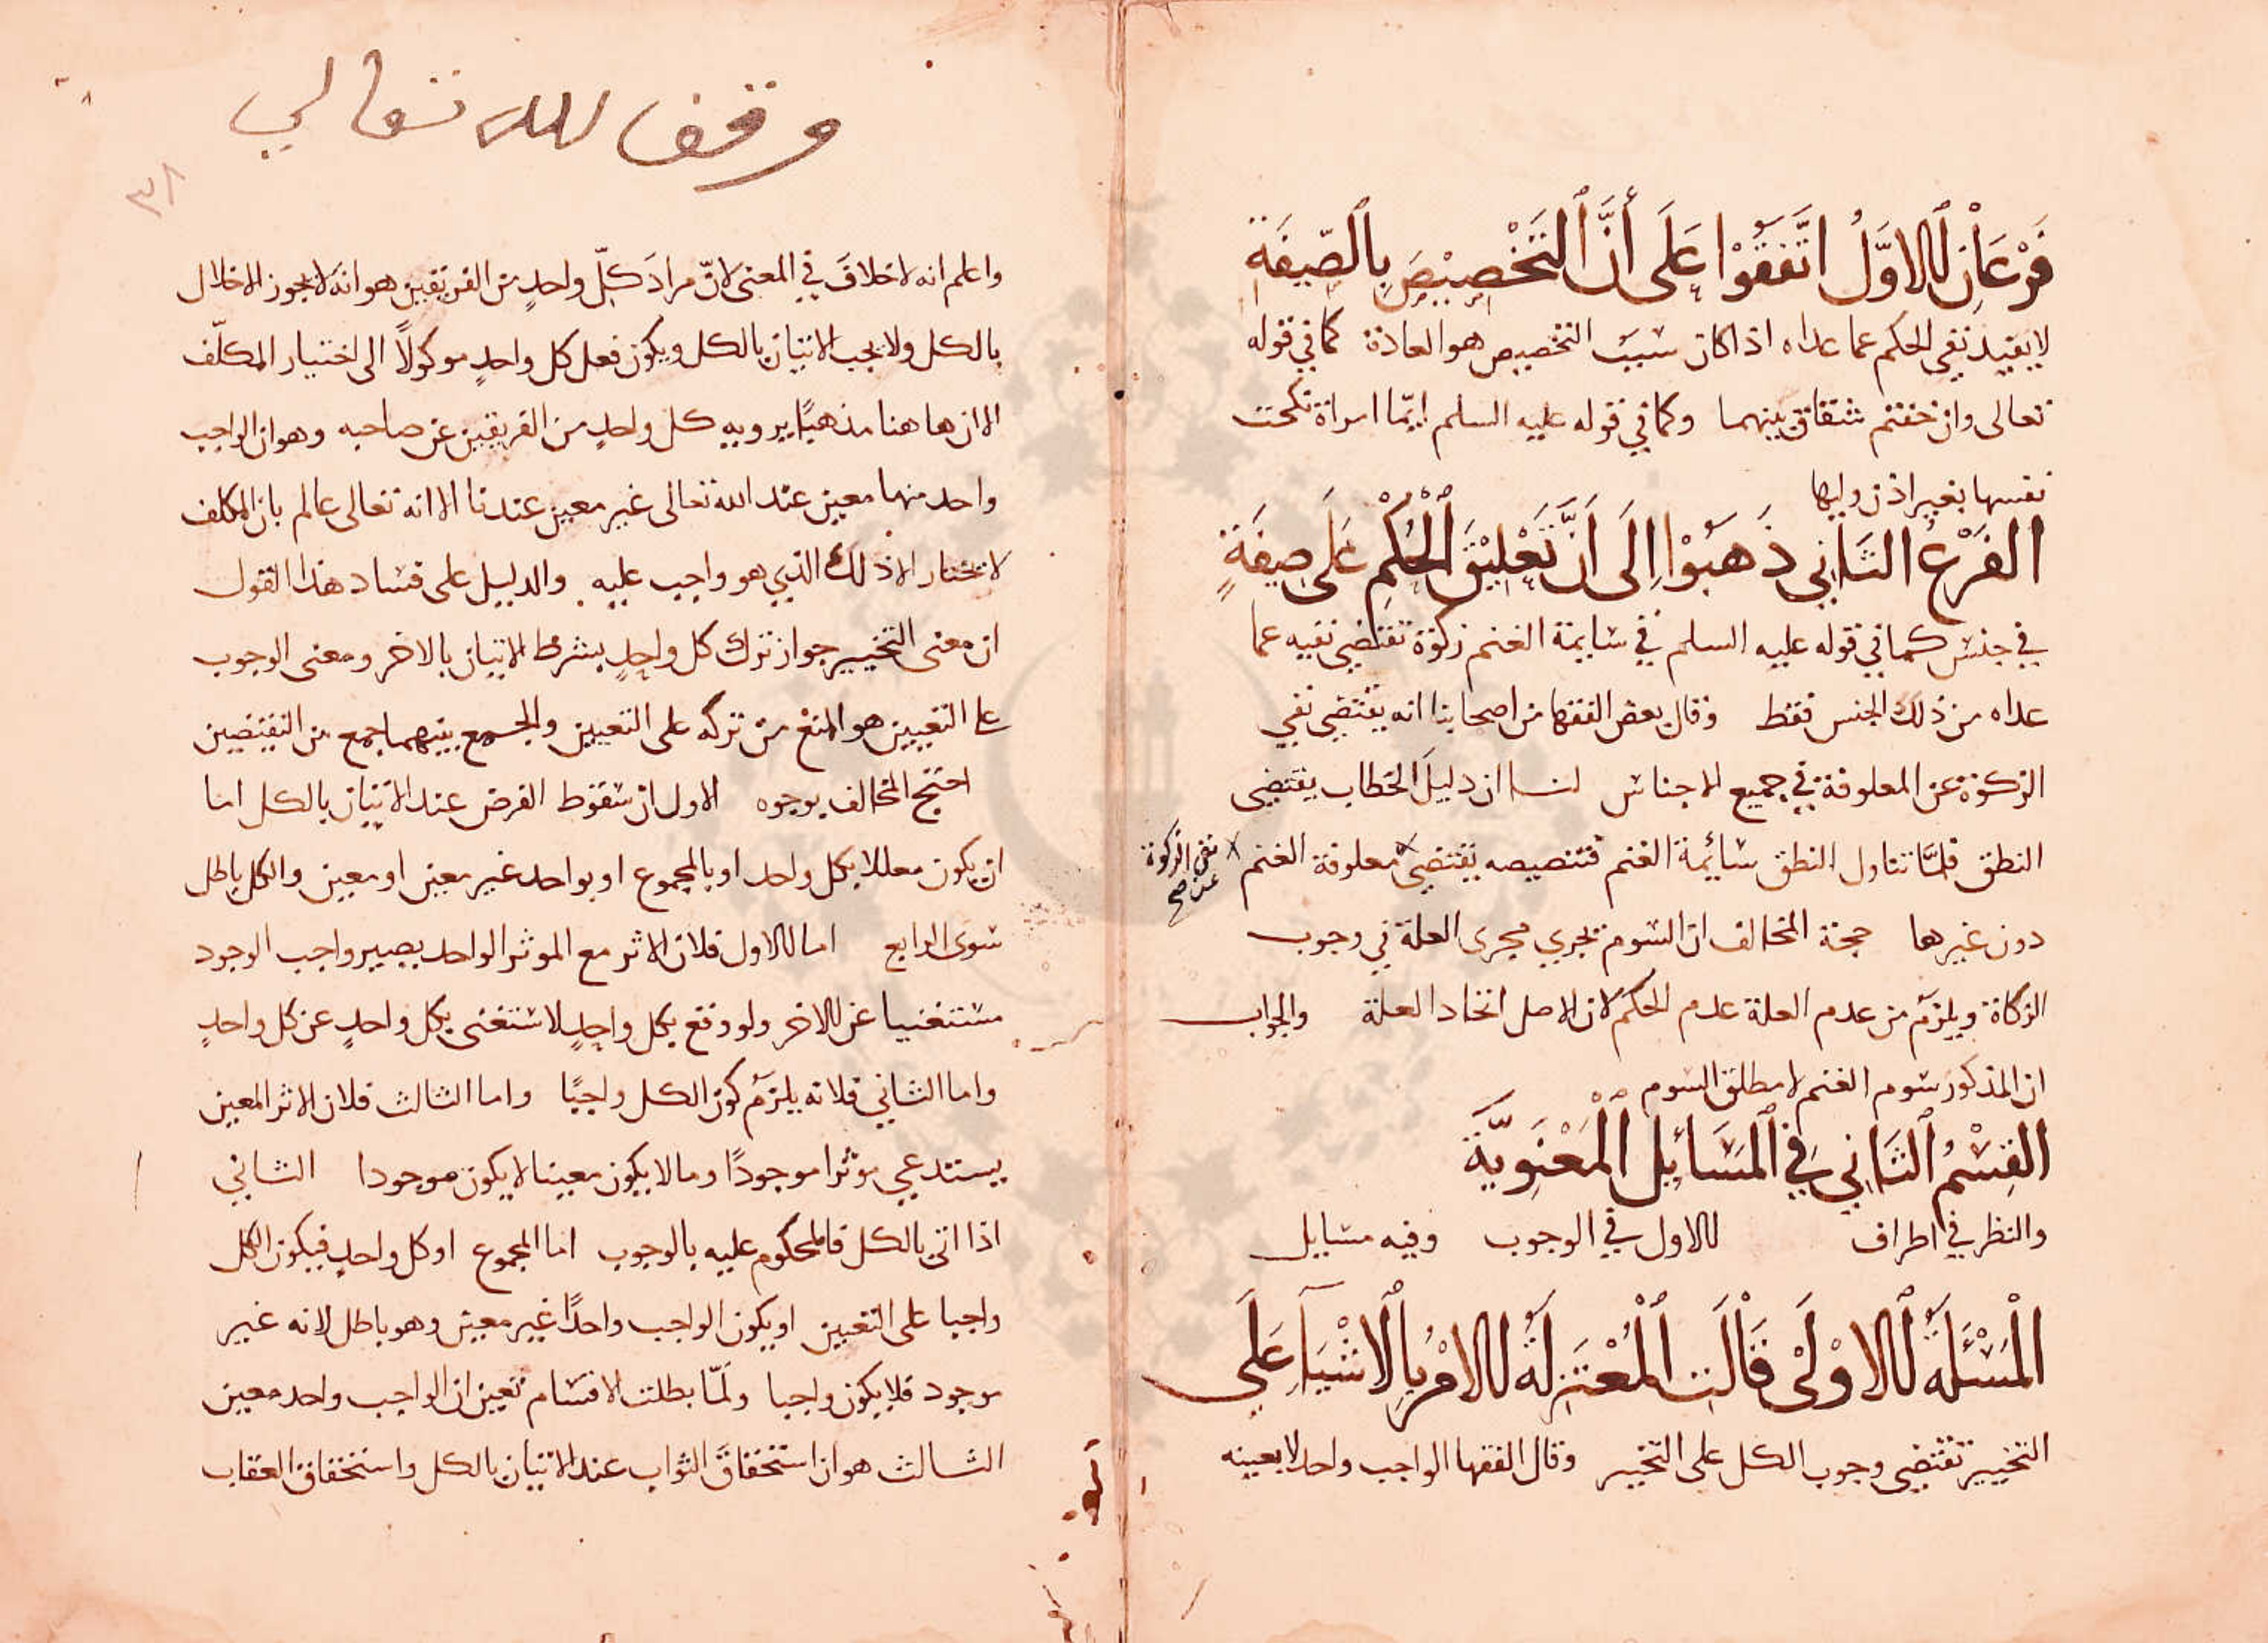 فَرْعَانِ الاوَّلُ اتَّفَقُوْا عَلَى أَنَّ التَخْصِيْصَ بِالصِّفَةِ
لا يفيد نفى الحكم عما عداه اذا كان سبب التخصيص هو العادة كما في قوله
تعالى وان خفتم شقاق بينهما وكما في قوله عليه السلم ايّما امراة نكحت
نفسها بغير اذن وليها
الفَرْعُ الثَانِي ذَهَبُوْا اِلَى اَنَّ تَعْلِيْقَ الْحُكْمِ عَلَى صِفَةٍ
في جنس كما في قوله عليه السلم في سايمة الغنم زكوة تقتضي نفيه عما
عداه من ذلك الجنس فقط وقال بعض الفقها من اصحابنا انه يقتضي نفي
الزكوة عن المعلوفة في جميع الاجناس لنا ان دليلَ الخطاب يقتضي
النطق فلمَّا تناول النطق سائيمة الغنم فتنصيصه يقتضي معلوفة الغنم
نفى الزكوة
عن صح
دون غيرها حجة المخالف ان السوم يجري مجرى العلة في وجوب
الزكاة ويلزم من عدم العلة عدم الحكم لان الاصل اتحاد العلة والجواب
ان المذكور سوم الغنم لا مطلق السوم
القِسْمُ الثَانِي فِي الْمَسَائِلِ الْمَعْنَوِيَّةِ
والنظر في اطراف الاول في الوجوب وفيه مسايل
الْمَسْئَلَةُ الاوْلَى قَالَتِ الْمُعْتَزِلَةُ الامْرُ بِالاشْيَآءِ عَلَى
التخيير تقتضي وجوب الكل على التخيير وقال الفقها الواجب واحد لا بعينه
وقف لله تعالى
٣٨
واعلم انه لا خلافَ في المعنى لانّ مرادَ كلّ واحدٍ من الفريقين هو انه لا يجوز الاخلال
بالكل ولا يجب الاتيان بالكل ويكون فعل كل واحدٍ موكولاً الى اختيار المكلّف
الا ان هاهنا مذهبًا يرويه كل واحدٍ من الفريقين عن صاحبه وهو ان الواجب
واحد منهما معين عند الله تعالى غير معين عندنا الا انه تعالى عالم بان المكلف
لا يختار الا ذلك الذي هو واجب عليه والدليل على فساد هذا القول
ان معنى التخيير جواز ترك كل واحدٍ بشرط الاتيان بالاخر ومعنى الوجوب
على التعيين هو المنع من تركه على التعيين والجمع بينهما جمع بين النقيضين
احتج المخالف بوجوه الاول ان سقوط الفرض عند الاتيان بالكل اما
ان يكون معللا بكل واحد او بالمجموع او بواحد غير معين او معين والكل باطل
سوى الرابع اما الاول فلان الاثر مع الموثر الواحد يصير واجب الوجود
مستغنيا عن الاخر ولو وقع بكل واحدٍ لاستغنى بكل واحدٍ عن كل واحدٍ
واما الثاني فلانه يلزم كون الكل واجبًا واما الثالث فلان الاثر المعين
يستدعي موثرا موجودًا وما لا يكون معينا لا يكون موجودا الثاني
اذا اتى بالكل فالمحكوم عليه بالوجوب اما المجموع او كل واحدٍ فيكون الكل
واجبا على التعيين او يكون الواجب واحدًا غير معين وهو باطل لانه غير
موجود فلا يكون واجبا ولمّا بطلت الاقسام تعين ان الواجب واحد معين
الثالث هو ان استحقاقَ الثواب عند الاتيان بالكل واستحقاق العقاب